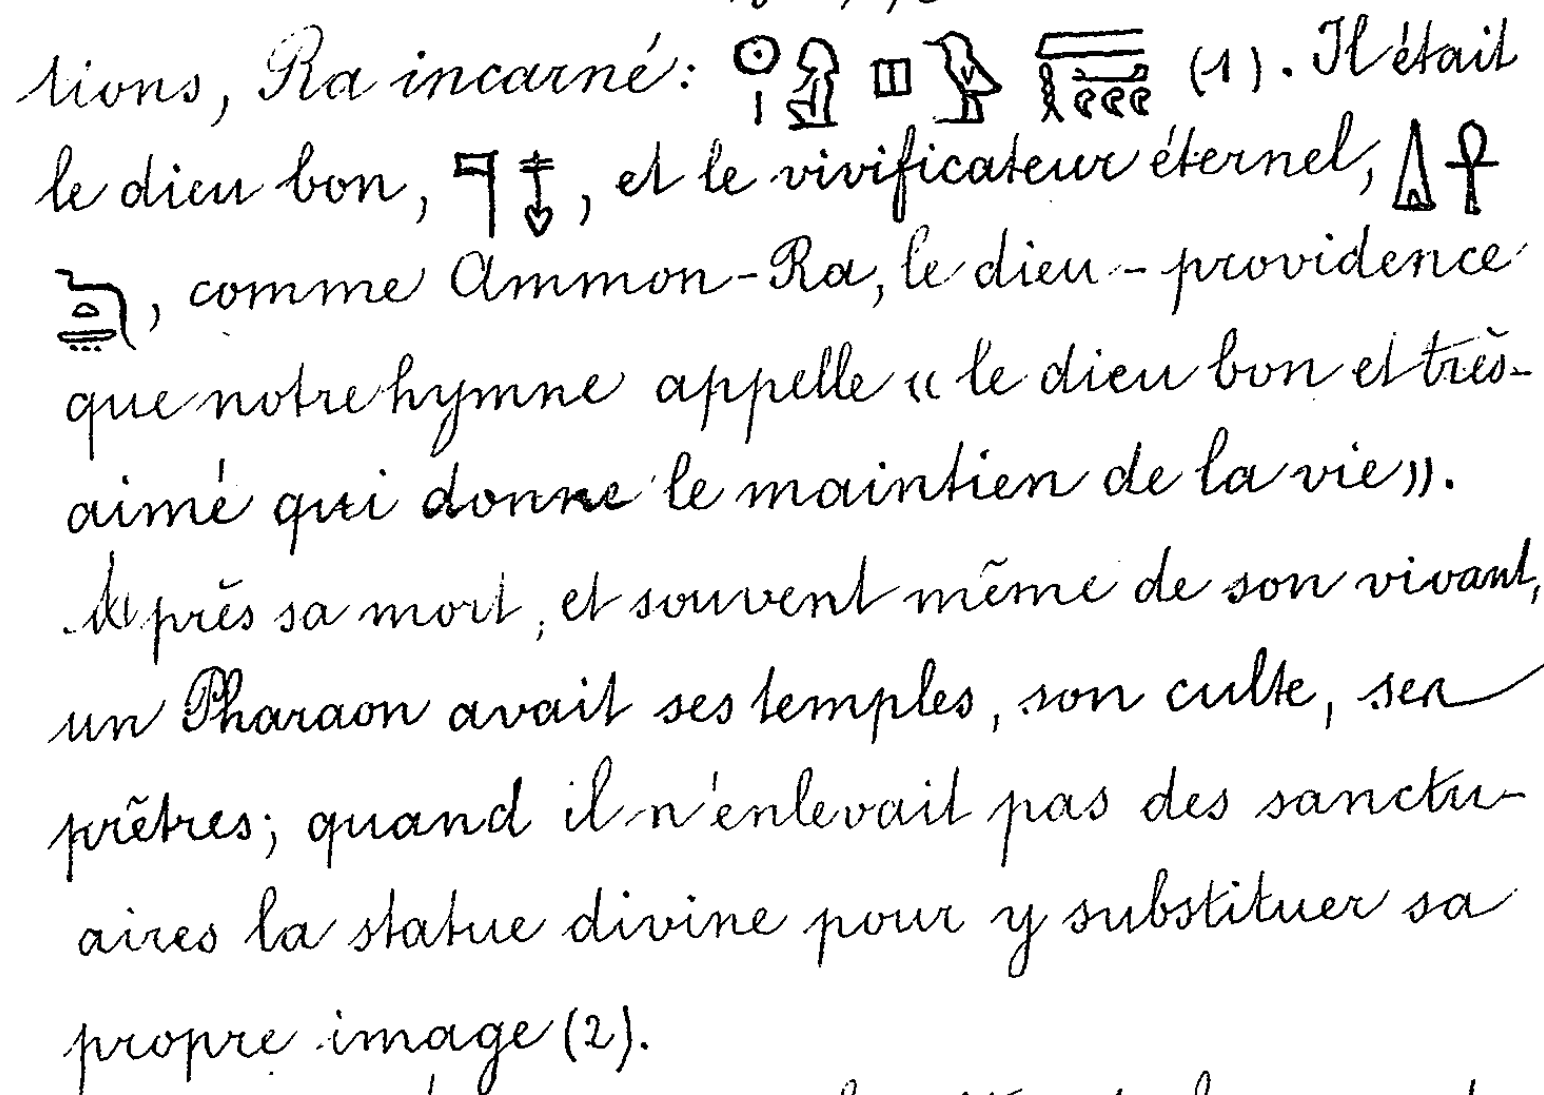 tions, Ra incarné: 𓇳𓏤𓀭 𓊪𓅮 𓇯𓎛𓄹𓄹𓄹 (1). Il était
le dieu bon, 𓊹𓄤, et le vivificateur éternel, 𓏙𓋹
𓆓𓏏𓇾, comme Ammon-Ra, le dieu-providence
que notre hymne appelle « le dieu bon et très-
aimé qui donne le maintien de la vie ».
Après sa mort, et souvent même de son vivant,
un Pharaon avait ses temples, son culte, ses
prêtres; quand il n'enlevait pas des sanctu-
aires la statue divine pour y substituer sa
propre image (2).